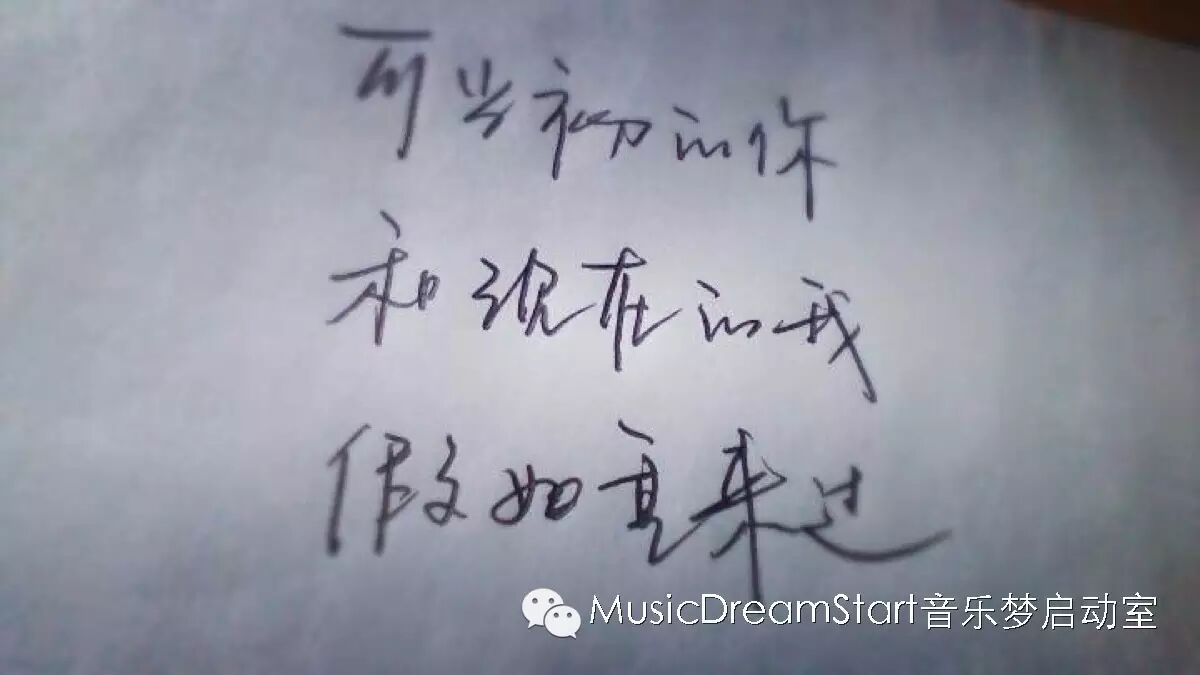 可当初的你
和现在的我
假如重来过
MusicDreamStart音乐梦启动室